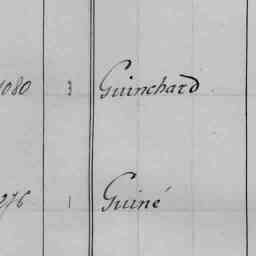 1080 3 Guinchard
276 1 Guiné